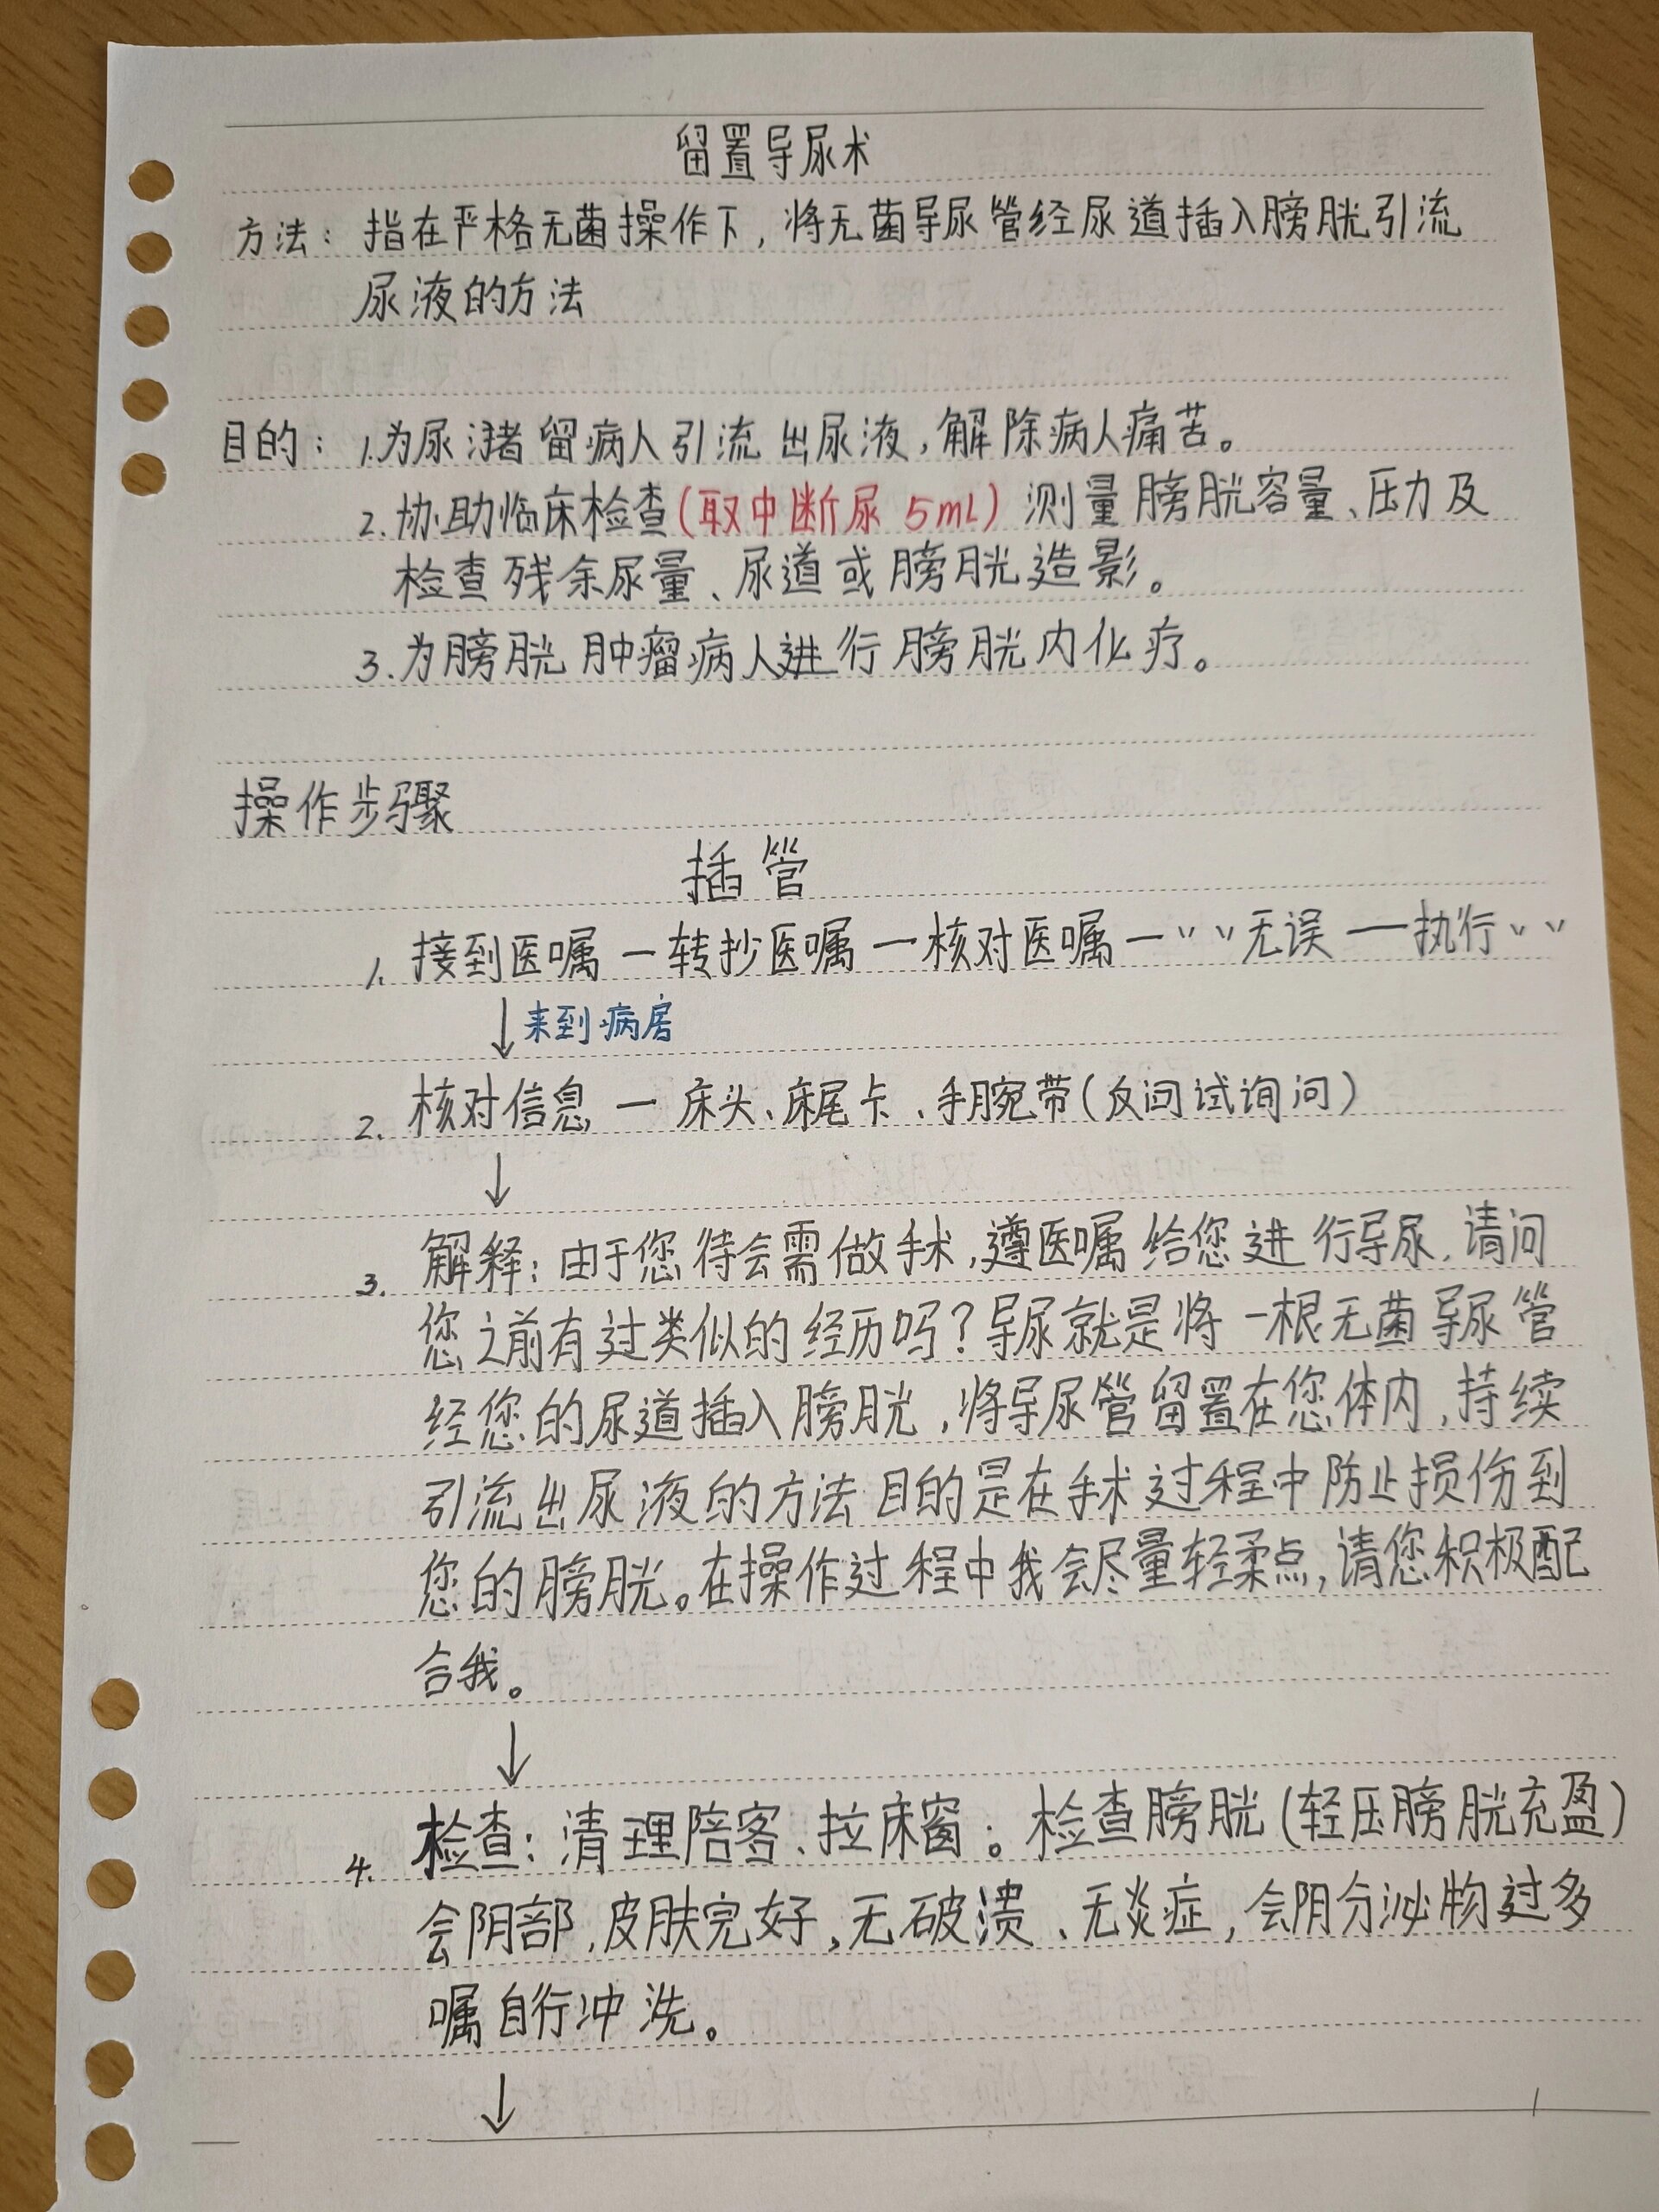 留置导尿术
方法：指在严格无菌操作下，将无菌导尿管经尿道插入膀胱引流
尿液的方法
目的：1.为尿潴留病人引流出尿液，解除病人痛苦。
2.协助临床检查(取中断尿 5mL) 测量膀胱容量、压力及
检查残余尿量、尿道或膀胱造影。
3.为膀胱肿瘤病人进行膀胱内化疗。
操作步骤
插管
1. 接到医嘱 — 转抄医嘱 — 核对医嘱 — 〃 〃 无误 — 执行 〃 〃
↓ 来到病房
2. 核对信息 — 床头、床尾卡、手腕带(反问试询问)
↓
3. 解释：由于您待会需做手术，遵医嘱给您进行导尿，请问
您之前有过类似的经历吗？导尿就是将一根无菌导尿管
经您的尿道插入膀胱，将导尿管留置在您体内，持续
引流出尿液的方法 目的是在手术过程中防止损伤到
您的膀胱。在操作过程中我会尽量轻柔点，请您积极配
合我。
↓
4. 检查：清理陪客、拉床窗。检查膀胱(轻压膀胱充盈)
会阴部，皮肤完好，无破溃、无炎症，会阴分泌物过多
嘱自行冲洗。
↓